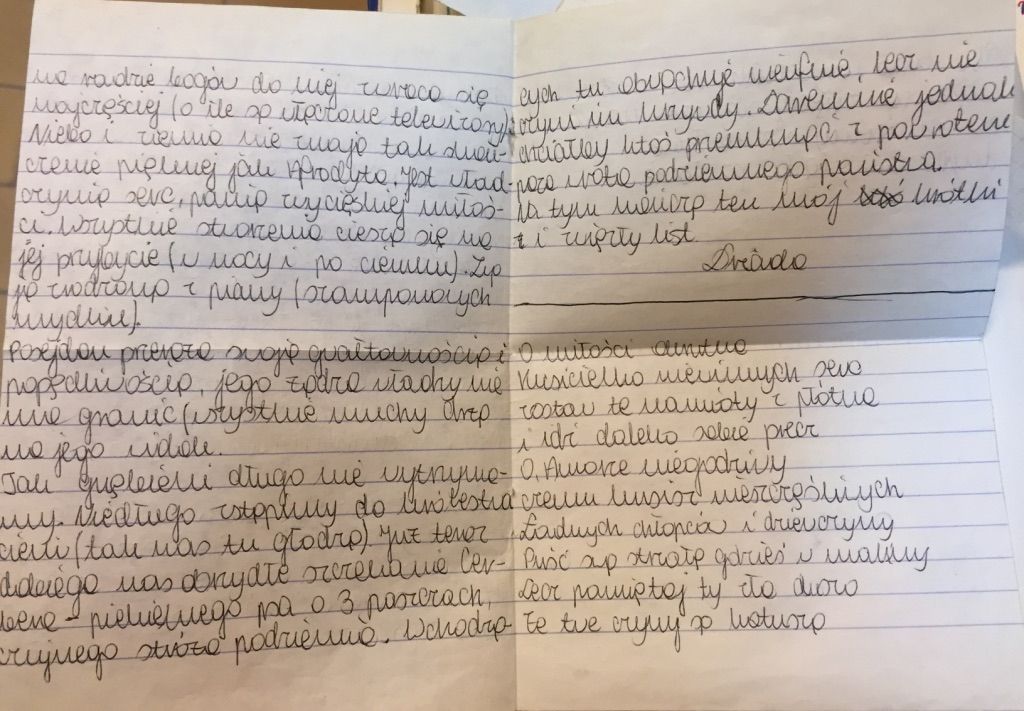 na radzie bogów do niej zwraca się
najczęściej (o ile są włączone telewizory).
Niebo i ziemia nie znają tak skoń-
czenie pięknej jak Afrodyta. Jest wład-
czynią serc, panią zwycięskiej miłoś-
ci. Wszystkie stworzenia cieszą się na
jej przybycie (w nocy i po ciemku).
ją zrodzoną z piany (szamponowych
mydlin).
Posejdon przeraża swoją gwałtownością i
popędliwością, jego żądza władzy nie
zna granic (wszystkie muchy drżą
na jego widok.
Tak gnębieni długo nie wytrzyma-
my. Niedługo zstąpimy do królestwa
cieni (tak nas tu głodzą) Już teraz
dobiega nas obrzydłe szczekanie Cer-
bera - piekielnego psa o 3 paszczach,
czujnego stróża podziemia. Wchodzą-
cych tu obwąchuje nieufnie, lecz nie
czyni im krzywdy. Daremnie jednak
chciałby ktoś przemknąć z powrotem
poza wrota podziemnego państwa.
Na tym kończę ten mój krótki
i zwięzły list
Driada
O miłości okrutna
Kusicielko niewinnych serc
zostaw te namioty z płótna
i idź daleko sobie precz
O, Amorze niegodziwy
czemu kusisz nieszczęśliwych
Ładnych chłopców i dziewczyny
Puść się strzałę gdzieś w maliny
Lecz pamiętaj ty zła
Że twe czyny są katuszą